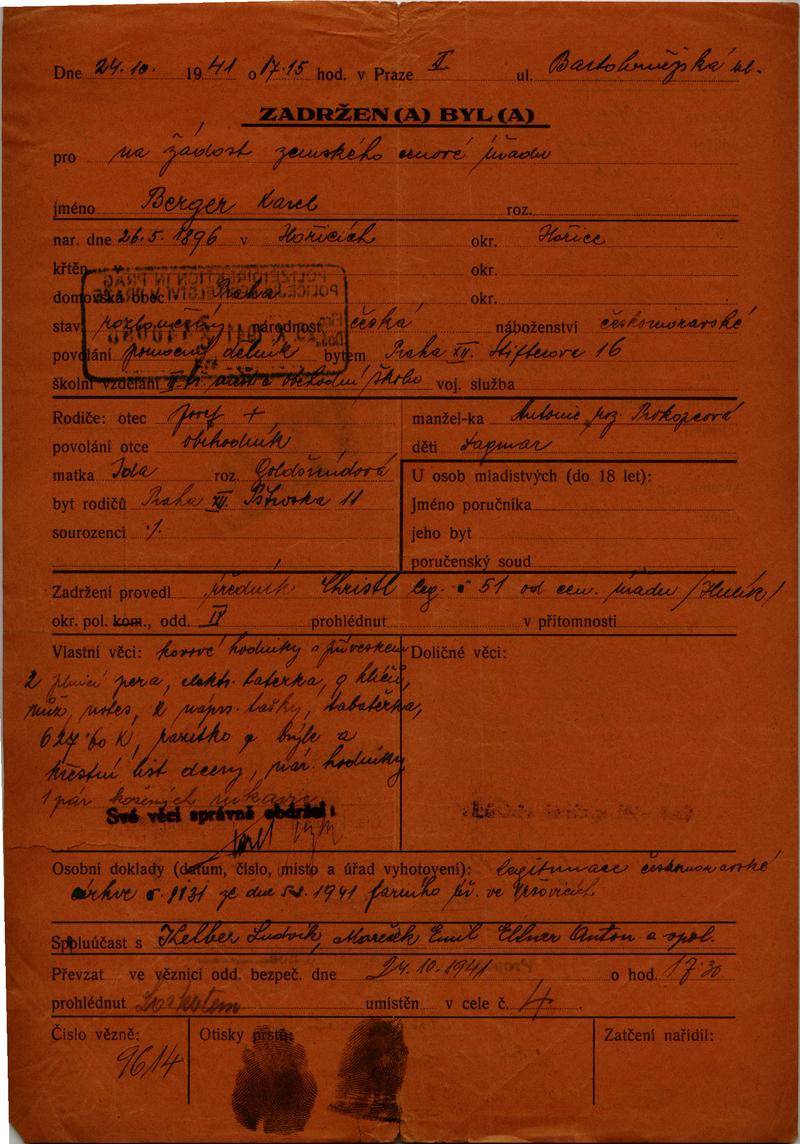 Dne 24.10. 1941 o 17·15 hod. v Praze II. ul. Bartolomějská ul.
ZADRŽEN(A) BYL(A)
pro na žádost zemského cenové úřadu
jméno Berger Karel roz.
nar. dne 26.5. 1896 v Hořicích okr. Hořice
křtěn v okr.
domovská obec Praha okr.
stav. rozloučený národnost česká náboženství českomoravské
povolání pomocný dělník bytem Praha XII. Stifterova 16
školní vzdělání a obchodní školu voj. služba
Rodiče: otec Josef +
povolání otce obchodník
matka Ida roz. Goldšmídová
byt rodičů Praha XII. 11
sourozenci ·/.
manžel-ka Antonie roz. Prokopcová
děti Dagmar
U osob mladistvých (do 18 let):
Jméno poručníka
jeho byt
poručenský soud
Zadržení provedl úředník Christl leg. č 51 od cen. úřadu
okr. pol. kom., odd. IV prohlédnut v přítomnosti
Vlastní věci: kovové hodinky s přívěskem
2 plnicí pera, elektr. baterka, 9 klíčů,
nůž, notes, 2 nápr. tašky, tabatěrka,
627·60 K, razítko brýle a
křestní list dcery, nár. hodinky
1 pár kožených rukavic
Své věci správně obdržel:
Doličné věci:
Osobní doklady (datum, číslo, místo a úřad vyhotovení): legitimace českomoravské
církve č. 1131 ze dne 1941 farního úř. ve Vršovicích
Spoluúčast s Kelber Ludvík, Mareček Emil Ellner Anton a spol.
Převzat ve věznici odd. bezpeč. dne 24.10.1941 o hod. 17·30
prohlédnut umístěn v cele č. 4.
Číslo vězně: 9614
Otisky prstů:
Zatčení nařídil: